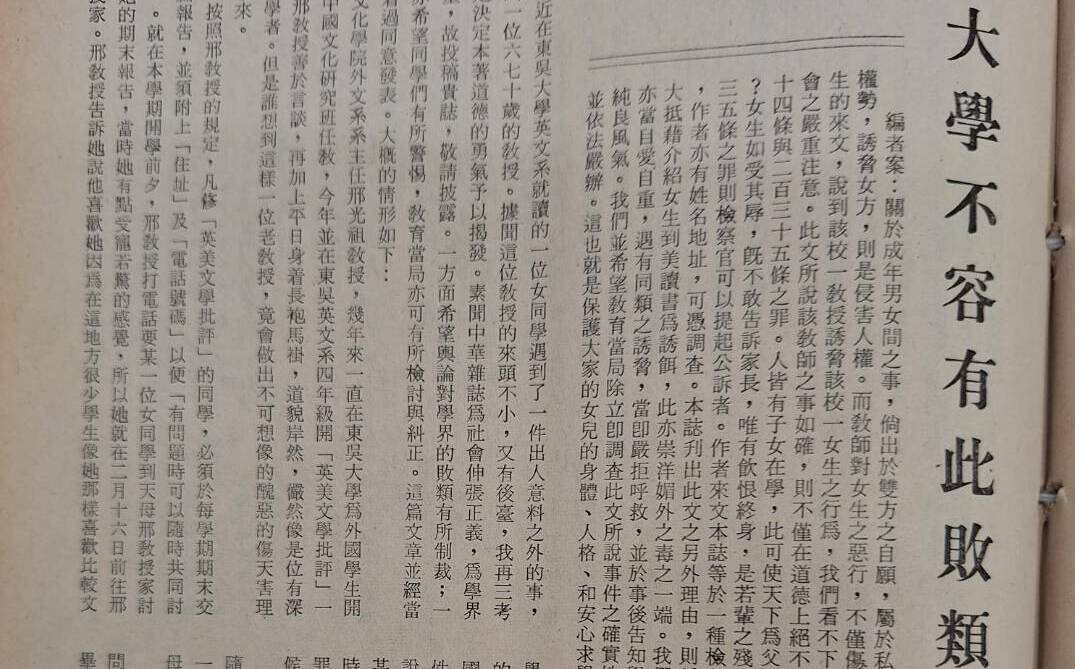 大學不容有此敗類
編者案：關於成年男女間之事，倘出於雙方之自願，屬於私
權勢，誘脅女方，則是侵害人權。而敎師對女生之惡行，不僅傷
生的來文，說到該校一敎授誘脅該校一女生之行爲，我們看不下
會之嚴重注意。此文所說該敎師之事如確，則不僅在道德上絕不
十四條與二百三十五條之罪。人皆有子女在學，此可使天下爲父
？女生如受其辱，旣不敢告訴家長，唯有飮恨終身，是若輩之殘
三五條之罪則檢察官可以提起公訴者。作者來文本誌等於一種檢
，作者亦有姓名地址，可憑調查。本誌刋出此文之另外理由，則
大抵藉介紹女生到美讀書爲誘餌，此亦崇洋媚外之毒之一端。我
亦當自愛自重，遇有同類之誘脅，當卽嚴拒呼救，並於事後告知
純良風氣。我們並希望敎育當局除立卽調查此文所說事件之確實
並依法嚴辦。這也就是保護大家的女兒的身體、人格、和安心求
近在東吳大學英文系就讀的一位女同學遇到了一件出人意料之外的事，
一位六七十歲的敎授。據聞這位敎授的來頭不小，又有後臺，我再三考
決定本著道德的勇氣予以揭發。素聞中華雜誌爲社會伸張正義，爲學界
，故投稿貴誌，敬請披露。一方面希望輿論對學界的敗類有所制裁；一
希望同學們有所警惕，敎育當局亦可有所檢討與糾正。這篇文章並經當
過同意發表。大概的情形如下：
文化學院外文系系主任邢光祖敎授，幾年來一直在東吳大學爲外國學生開
中國文化硏究班任敎，今年並在東吳英文系四年級開「英美文學批評」一
邢敎授善於言談，再加上平日身着長袍馬褂，道貌岸然，儼然像是位有深
學者。但是誰想到這樣一位老敎授，竟會做出不可想像的醜惡的傷天害理
來。
按照邢敎授的規定，凡修「英美文學批評」的同學，必須於每學期期末交
報告，並須附上「住址」及「電話號碼」以便「有問題時可以隨時共同討
。就在本學期開學前夕，邢敎授打電話要某一位女同學到天母邢敎授家討
的期末報告，當時她有點受寵若驚的感覺，所以她就在二月十六日前往邢
家。邢敎授告訴她說他喜歡她因爲在這地方很少學生像她那樣喜歡比較文
的
國
件
說
某
時
罪
候
隨
一
母
問
畢